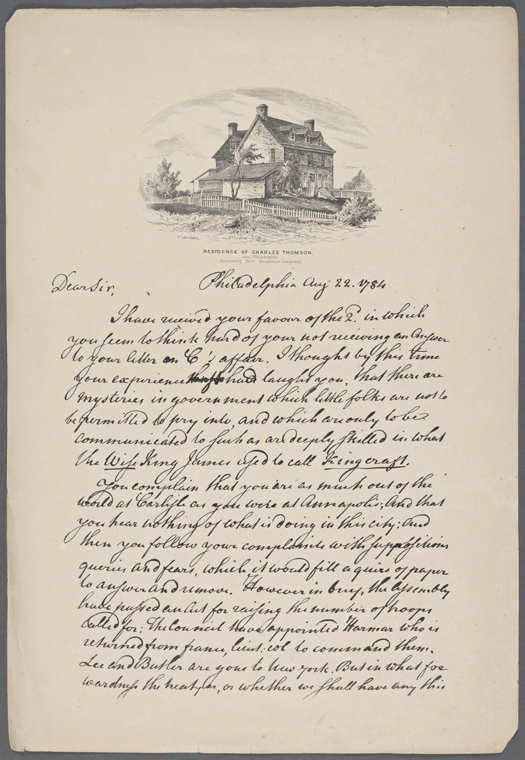 RESIDENCE OF CHARLES THOMSON,
near Philadelphia
Secretary first American Congress
Dear Sir, Philadelphia Aug 22. 1784
I have received your favour of the 2d. in which
you seem to think hard of your not receiving an answer
to your letter on C's affair. I thought by this time
your experience had taught you, that there are
mysteries in government which little folks are not to
be permitted to pry into, and which are only to be
communicated to such as are deeply skilled in what
the Wise King James used to call Kingcraft.
You complain that you are as much out of the
world at Carlisle as you were at Annapolis; And that
you hear nothing of what is doing in this city; and
then you follow your complaints with suppositions
queries and fears, which it would fill a quire of paper
to answer and remove. However in brief, the Assembly
have passed an Act for raising the number of troops
called for; The Council have appointed Harmar who is
returned from france, lieut: col to command them.
Lee and Butler are gone to New york. But in what for
wardness the treaty is, or whether we shall have any this